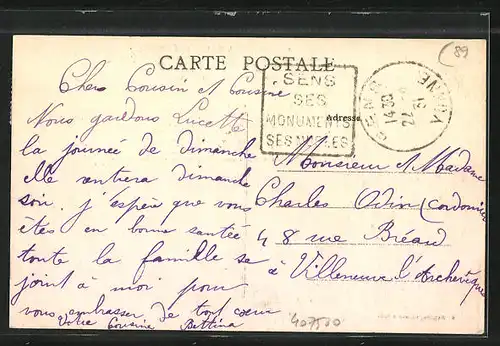 CARTE POSTALE
89
SENS
SES
MONUMENTS
SES MUSÉES
Adresse
YONNE
1430
22
31
Chers Cousin et Cousine
Nous gardons Lucette
la journée de dimanche
elle rentrera dimanche
soir. j'espère que vous
êtes en bonne santée
toute la famille se
joint à moi pour
vous embrasser de tout cœur
Votre Cousine Bettina
Monsieur et Madame
Charles Odin (cordonnier
48 rue Bréard
à Villeneuve l'Archevêque
407500